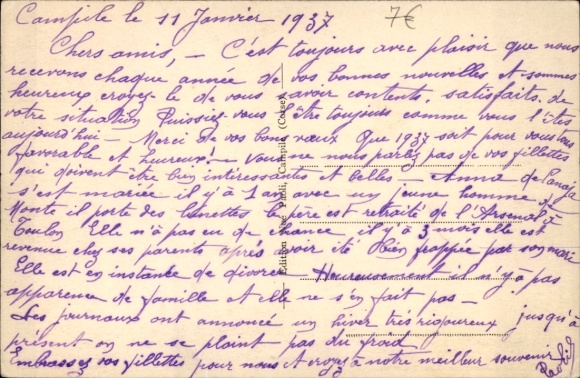 Campile le 11 Janvier 1937
7€
Chers amis, – C'est toujours avec plaisir que nous
recevons chaque année de vos bonnes nouvelles et sommes
heureux croyez le de vous savoir contents, satisfaits de
votre situation Puissiez-vous être toujours comme vous l'êtes
aujourd'hui – Merci de vos bons vœux Que 1937 soit pour vous tous
favorable et heureux! – Vous ne nous parlez pas de vos fillettes
qui doivent être bien intéressantes et belles – Anna de
s'est mariée il y'a 1 an avec un jeune homme de
Monte il porte des lunettes le père est retraité de l'Arsenal de
Toulon Elle n'a pas eu de chance il y'à 3 mois elle est
revenue chez ses parents après avoir été bien frappée par son mari
Elle est en instante de divorce Heureusement il n'y a pas
apparence de famille et elle ne s'en fait pas –
Les journaux ont annoncé un hiver très rigoureux jusqu'à
présent on ne se plaint pas du froid
Embrassez vos fillettes pour nous et croyez à notre meilleur souvenir
Edition Campile (Corse)